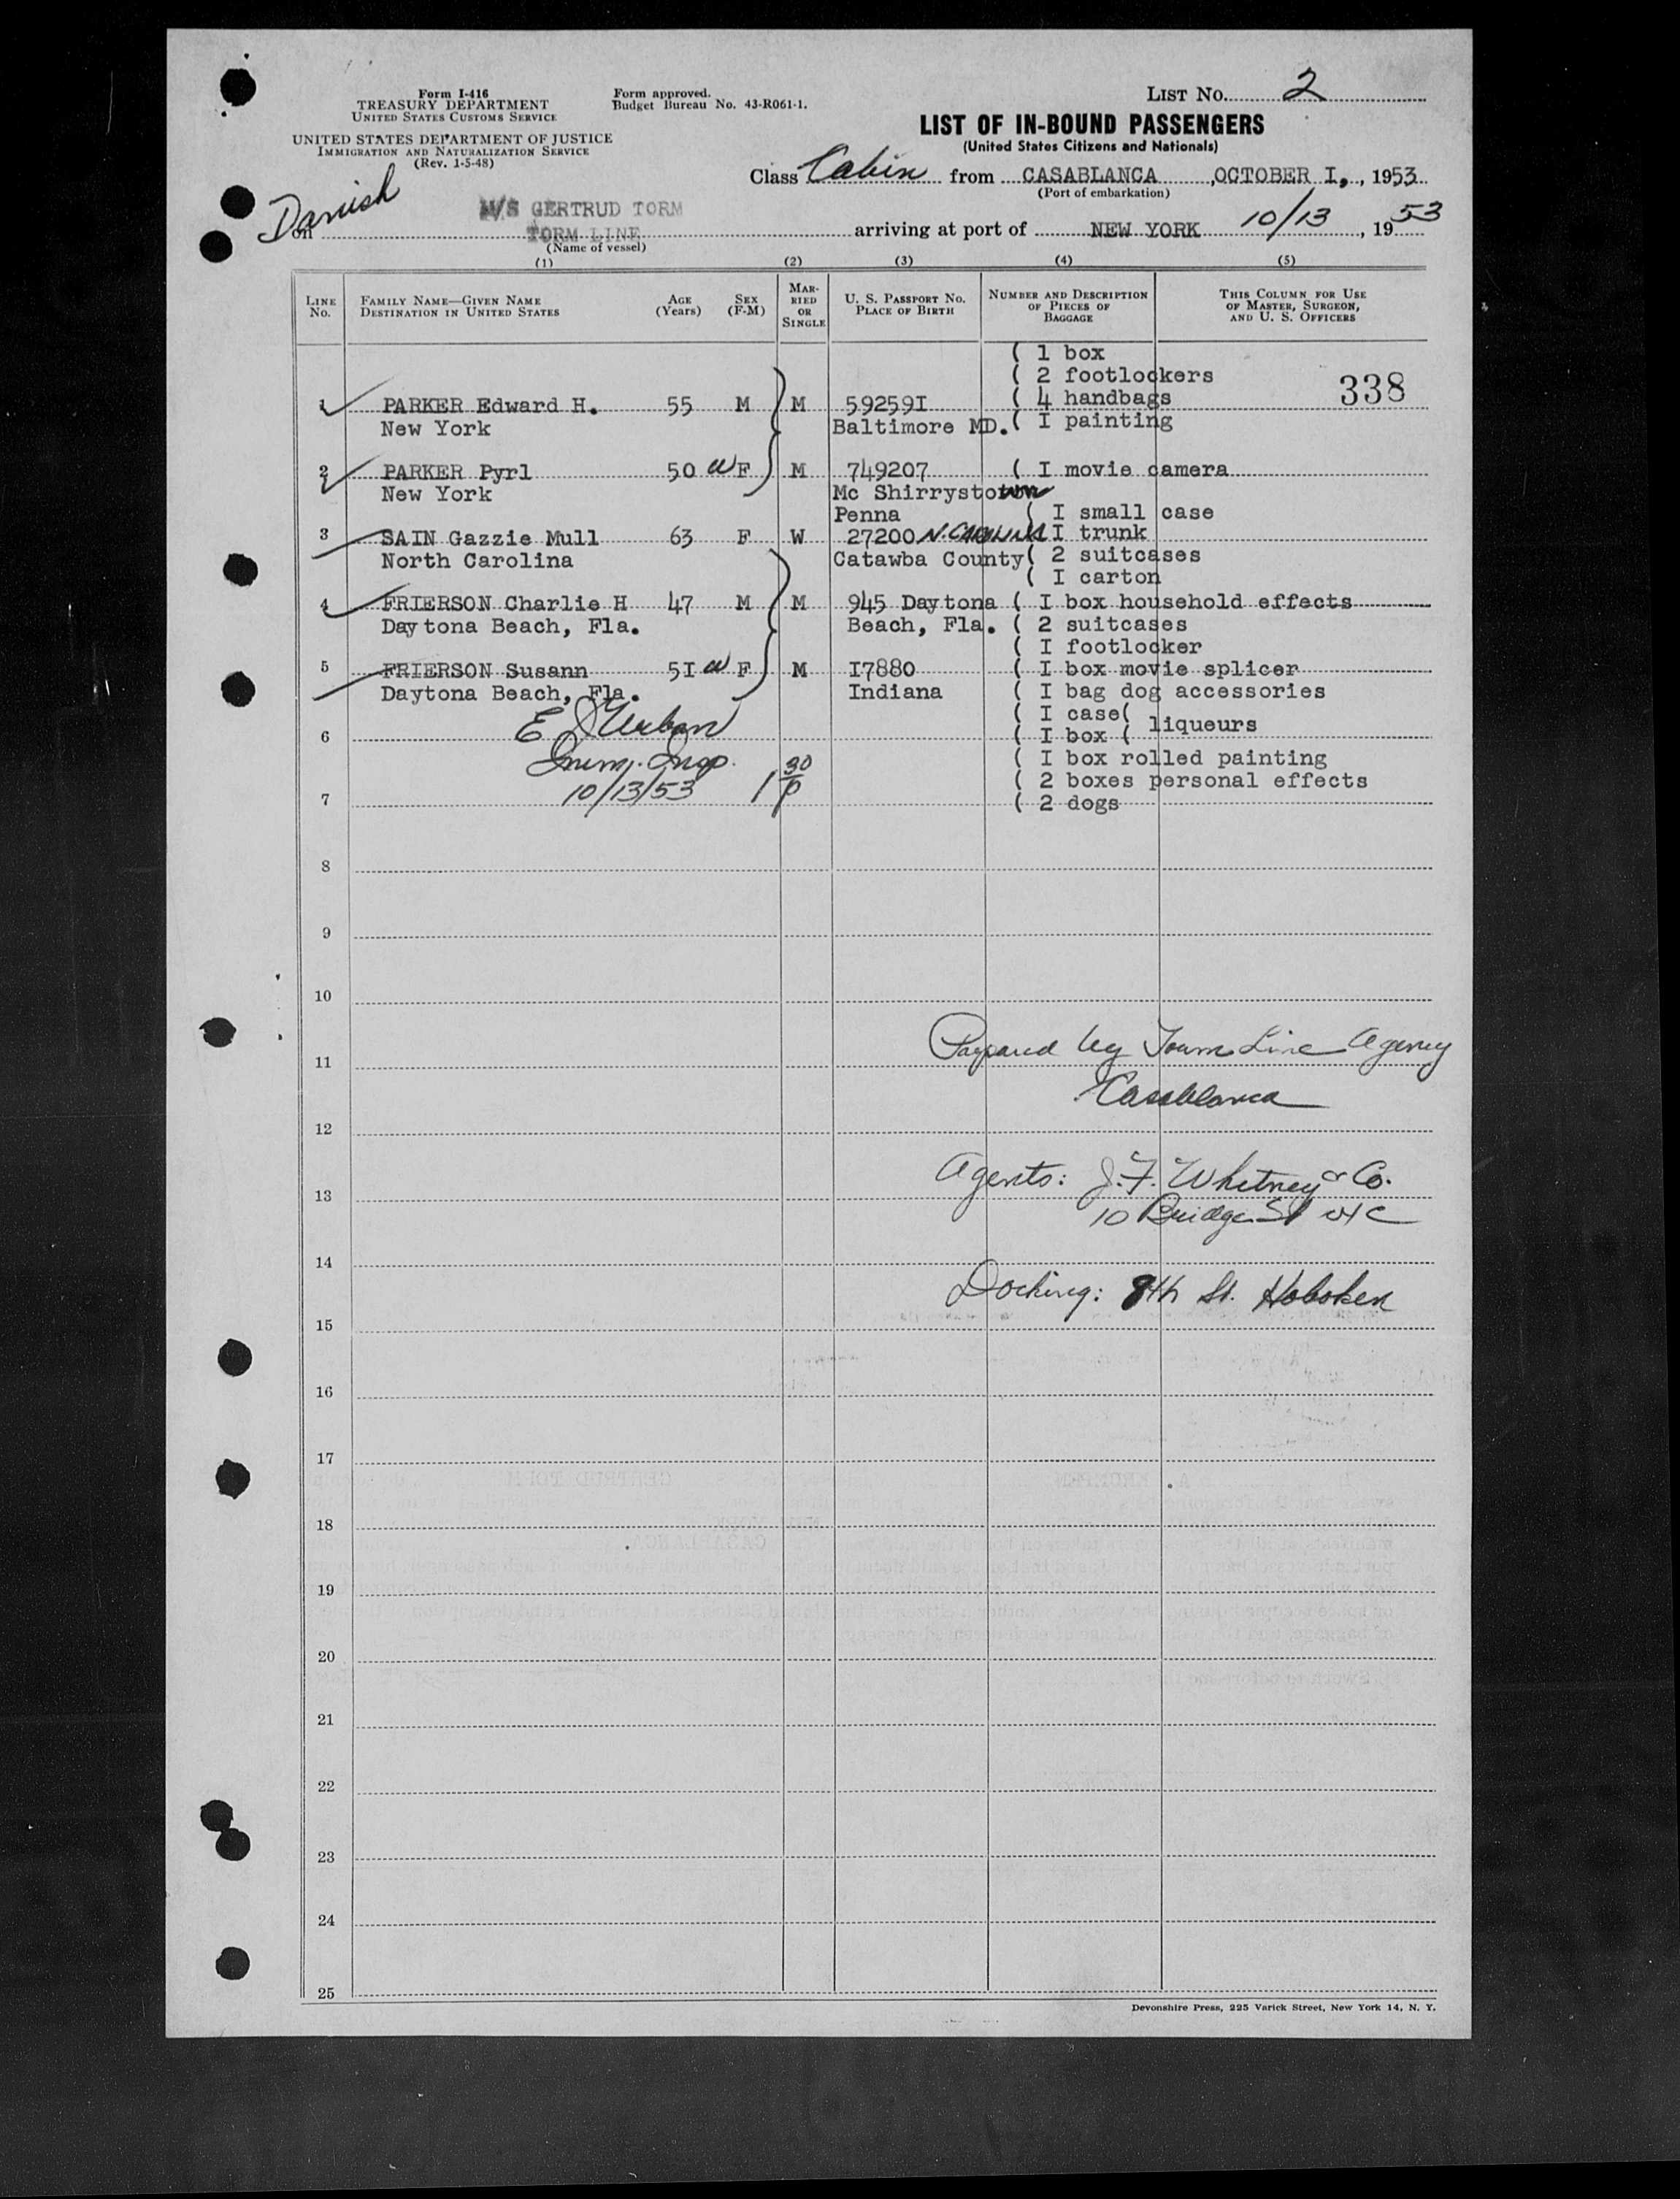 Form I-416
TREASURY DEPARTMENT
UNITED STATES CUSTOMS SERVICE
UNITED STATES DEPARTMENT OF JUSTICE
IMMIGRATION AND NATURALIZATION SERVICE
(Rev. 1-5-48)
Form approved.
Budget Bureau No. 43-R061-1.
LIST No. 2
LIST OF IN-BOUND PASSENGERS
(United States Citizens and Nationals)
Class Cabin from CASABLANCA, OCTOBER I, 1953
(Port of embarkation)
Danish
on M/S GERTRUD TORM
TORM LINE
(Name of vessel)
arriving at port of NEW YORK 10/13, 1953
(1) (2) (3) (4) (5)
LINE No. FAMILY NAME—GIVEN NAME DESTINATION IN UNITED STATES AGE (Years) SEX (F-M) MARRIED OR SINGLE U. S. PASSPORT No. PLACE OF BIRTH NUMBER AND DESCRIPTION OF PIECES OF BAGGAGE THIS COLUMN FOR USE OF MASTER, SURGEON, AND U. S. OFFICERS
( 1 box
( 2 footlockers
1 PARKER Edward H. 55 M M 59259I ( 4 handbags 338
New York Baltimore MD. ( I painting
2 PARKER Pyrl 50 W F M 749207 ( I movie camera
New York Mc Shirrystown
Penna ( I small case
3 SAIN Gazzie Mull 63 F W 27200 N. CAROLINA I trunk
North Carolina Catawba County ( 2 suitcases
( I carton
4 FRIERSON Charlie H 47 M M 945 Daytona ( I box household effects
Daytona Beach, Fla. Beach, Fla. ( 2 suitcases
( I footlocker
5 FRIERSON Susann 5I W F M I7880 ( I box movie splicer
Daytona Beach, Fla. Indiana ( I bag dog accessories
( I case( liqueurs
6 E J Urban ( I box (
Imm. Insp. ( I box rolled painting
10/13/53 1 30 p ( 2 boxes personal effects
7 ( 2 dogs
8
9
10
Prepared by Torm Line Agency
11
Casablanca
12
Agents: J. F. Whitney & Co.
13
10 Bridge St NYC
14
Docking: 8th St. Hoboken
15
16
17
18
19
20
21
22
23
24
25
Devonshire Press, 225 Varick Street, New York 14, N. Y.